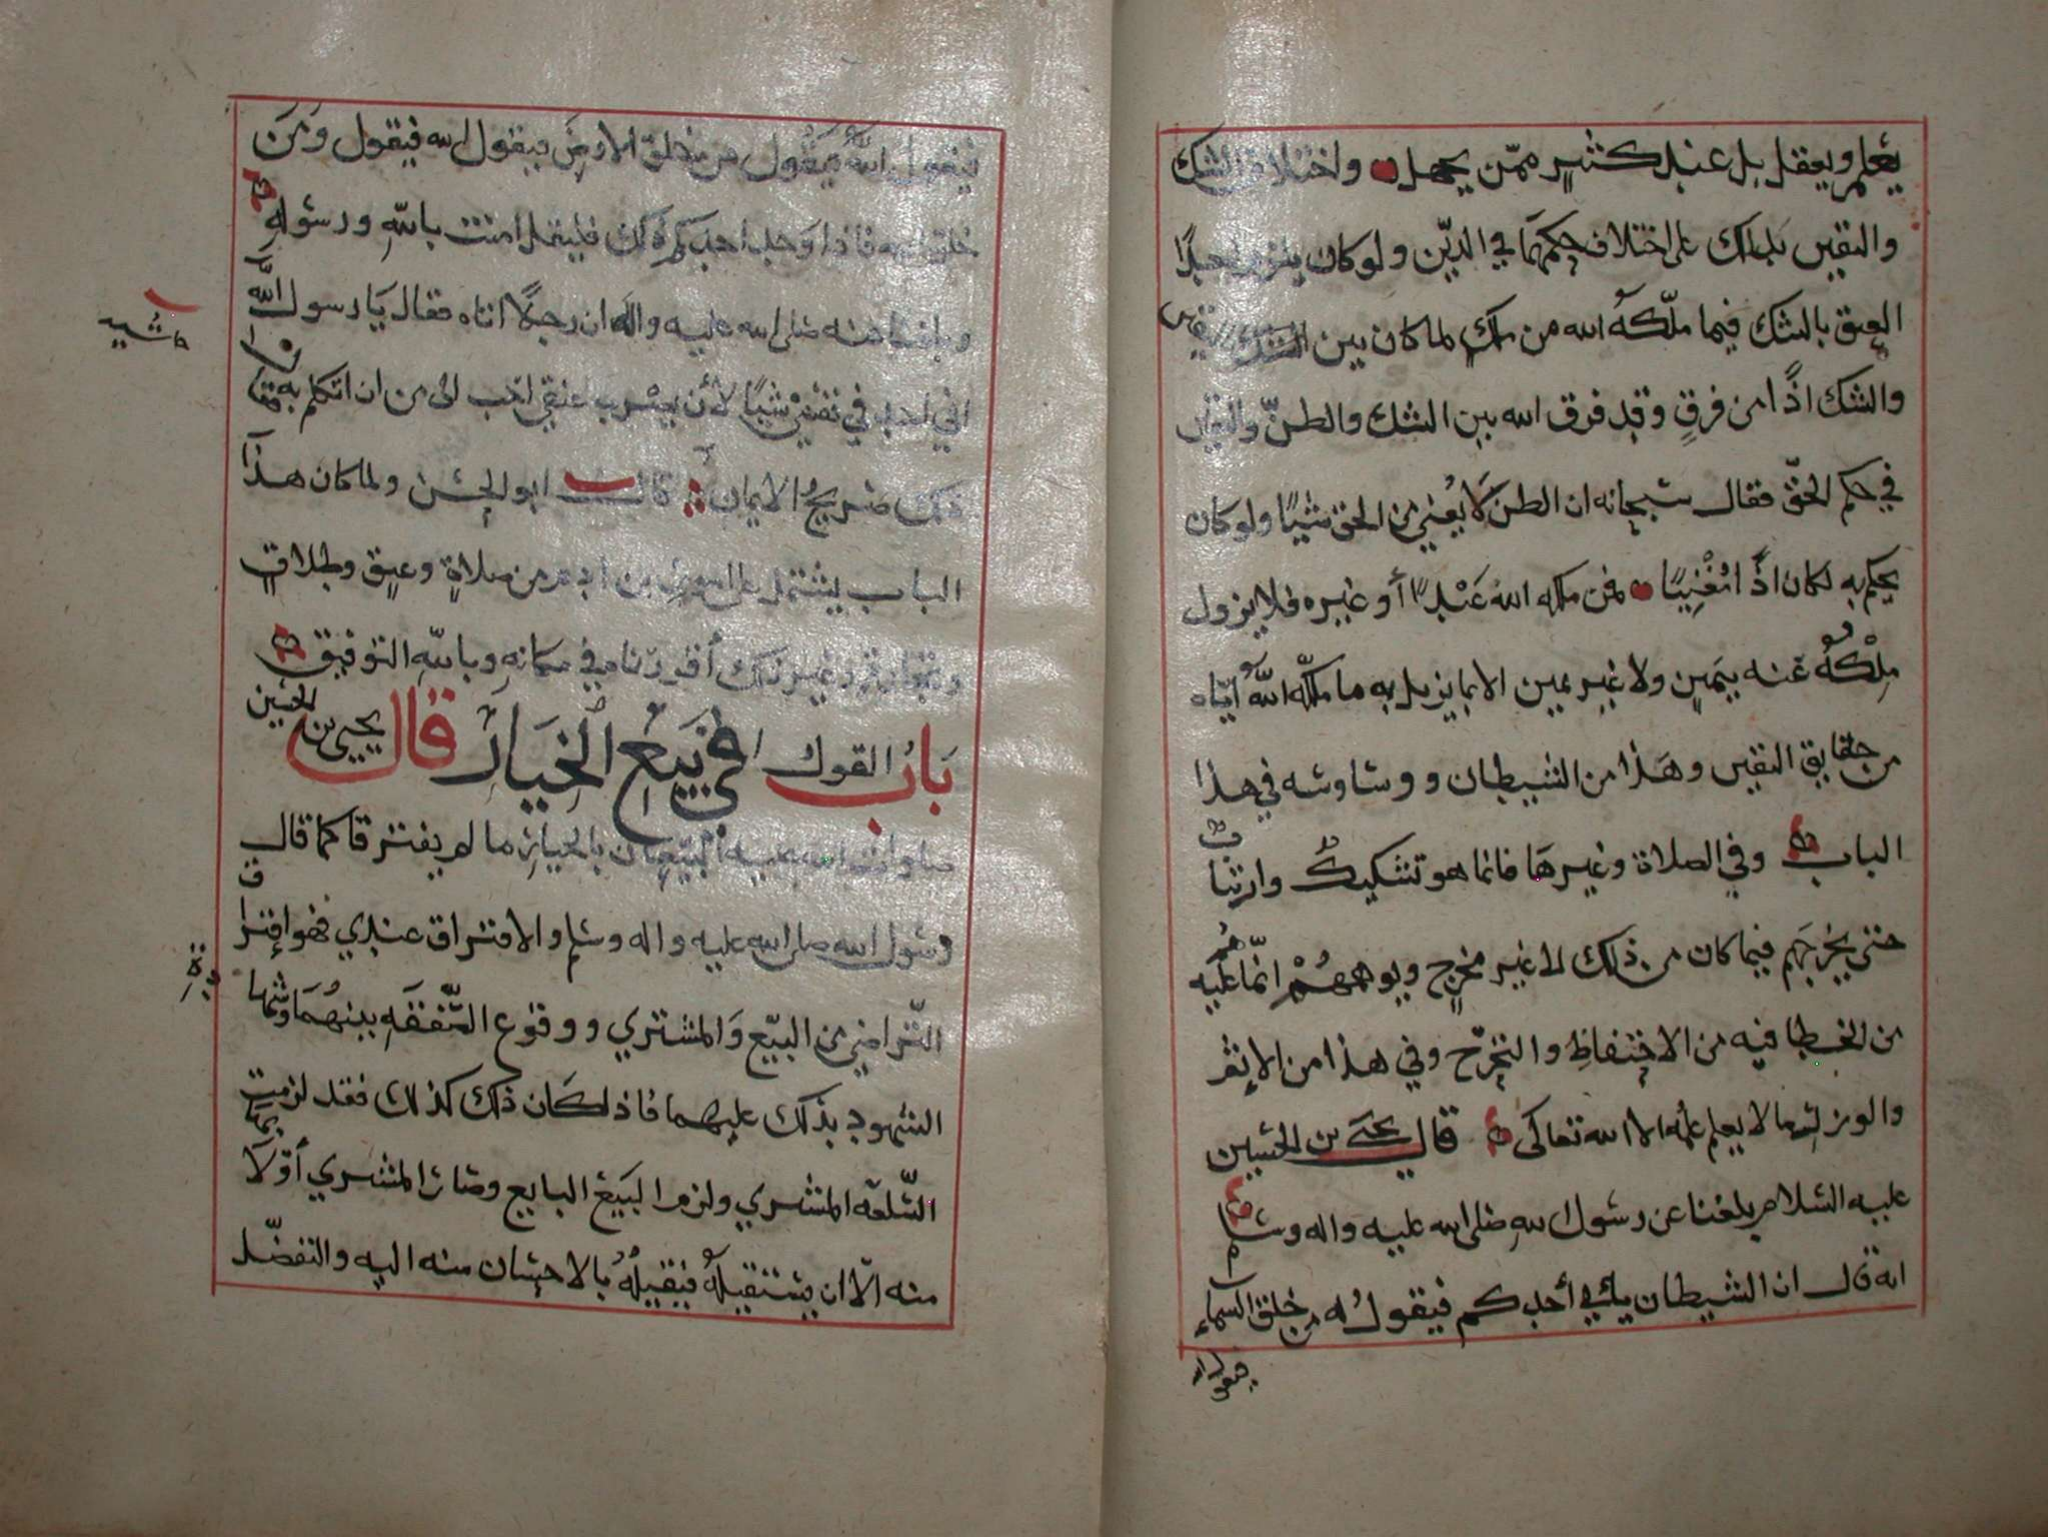 يعلم ويعقل بل عند كثير ممن يجهل واختلاف الشك
واليقين بذلك على اختلاف حكمهما في الدين ولو كان يلزم احدًا
العتق بالشك فيما ملّكه الله من ملك لما كان بين اليقين
والشك اذًا من فرقٍ وقد فرق الله بين الشك والظنّ واليقين
في حكم الحقّ فقال سبحانه ان الظن لا يُغني من الحق شيئًا ولو كان
يحكم به لكان اذًا مُغْنِيًا فمن ملكه الله عَبْدًا أو غيره فلا يزول
مِلْكهُ عنه بيمينٍ ولا غير يمين الا بما يزيل به ما ملكه اللهُ ايّاه
من حقايق اليقين وهذا من الشيطان ووساوسه في هذا
الباب وفي الصلاة وغيرها فانما هو تشكيكٌ وارتياب
حتى يخرجهم فيما كان من ذلك الى غير مخرجٍ ويوهمهُمْ انما هُم عليه
من الخطا فيه من الاحتفاظِ والتحرّج وفي هذا من الاثم
والوزر لهم ما لا يعلم علمه الا الله تعالى قال يحيى بن الحسين
عليه السلام بلغنا عن رسول اللهِ صلى الله عليه واله وسلم
انه قال ان الشيطان يأتي أحدكم فيقولُ له من خلق السماء
فيقول
فيقول اللهُ فيقول من خلق الارضَ فيقول الله فيقول ومَن
خلق الله فاذا وجد احدكم ذلك فليقل امنت باللهِ ورسولهِ
وبلغنا عنه صلى الله عليه واله ان رجلًا اتاه فقال يا رسول اللهِ
حاشيه
اني لاجد في نفسي شيئًا لأن يضرب عنقي احب الى من ان اتكلم به فقال
ذلك صريحُ الايمان قال ابو الحسن ولما كان هذا
الباب يشتمل على من صلاةٍ وعتقٍ وطلاقٍ
وغير ذلك في مكانهِ وباللهِ التوفيق
بابُ القول في بَيع الخيار قال يحيى بن الحسين
صلوات الله عليه البيّعان بالخيار ما لم يفترقا كما قال
رسول الله صلى الله عليه واله وسلم والافتراق عندي فهو افتراق
التّراضي من البيّع والمشتري ووقوع الصَّفقه بينهُما وشهادة
الشهود بذلك عليهما فاذا كان ذلك كذلك فقد لزمت
السّلعه المشتري ولزم البَيْع البايع وصار المشتري أولَا بها
منه الّا ان يستقيلهُ فيقيلهُ بالاحسان منه اليه والتفضّل